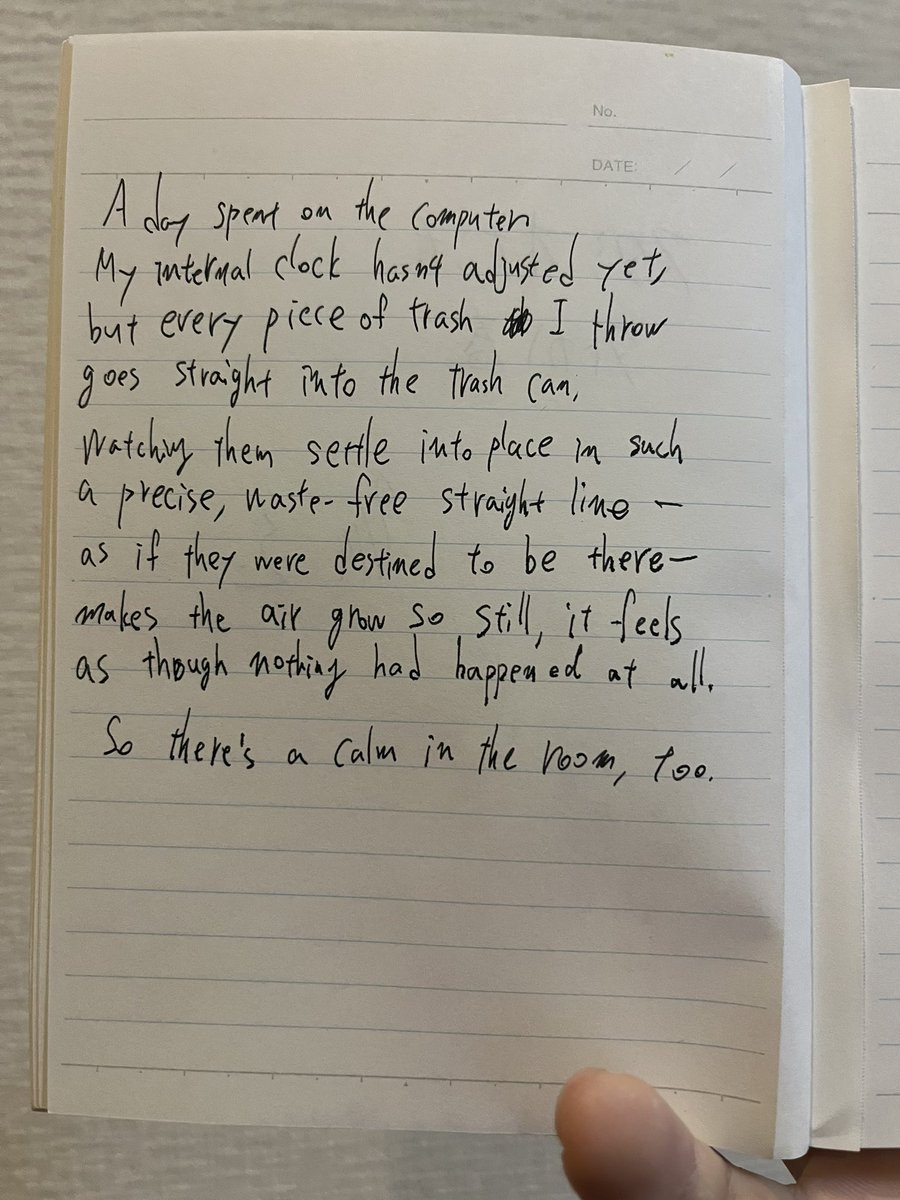 No.
DATE: / /
A day spent on the computer
My internal clock hasn't adjusted yet,
but every piece of trash I throw
goes straight into the trash can,
Watching them settle into place in such
a precise, waste-free straight line —
as if they were destined to be there—
makes the air grow so still, it feels
as though nothing had happened at all.
So there's a calm in the room, too.